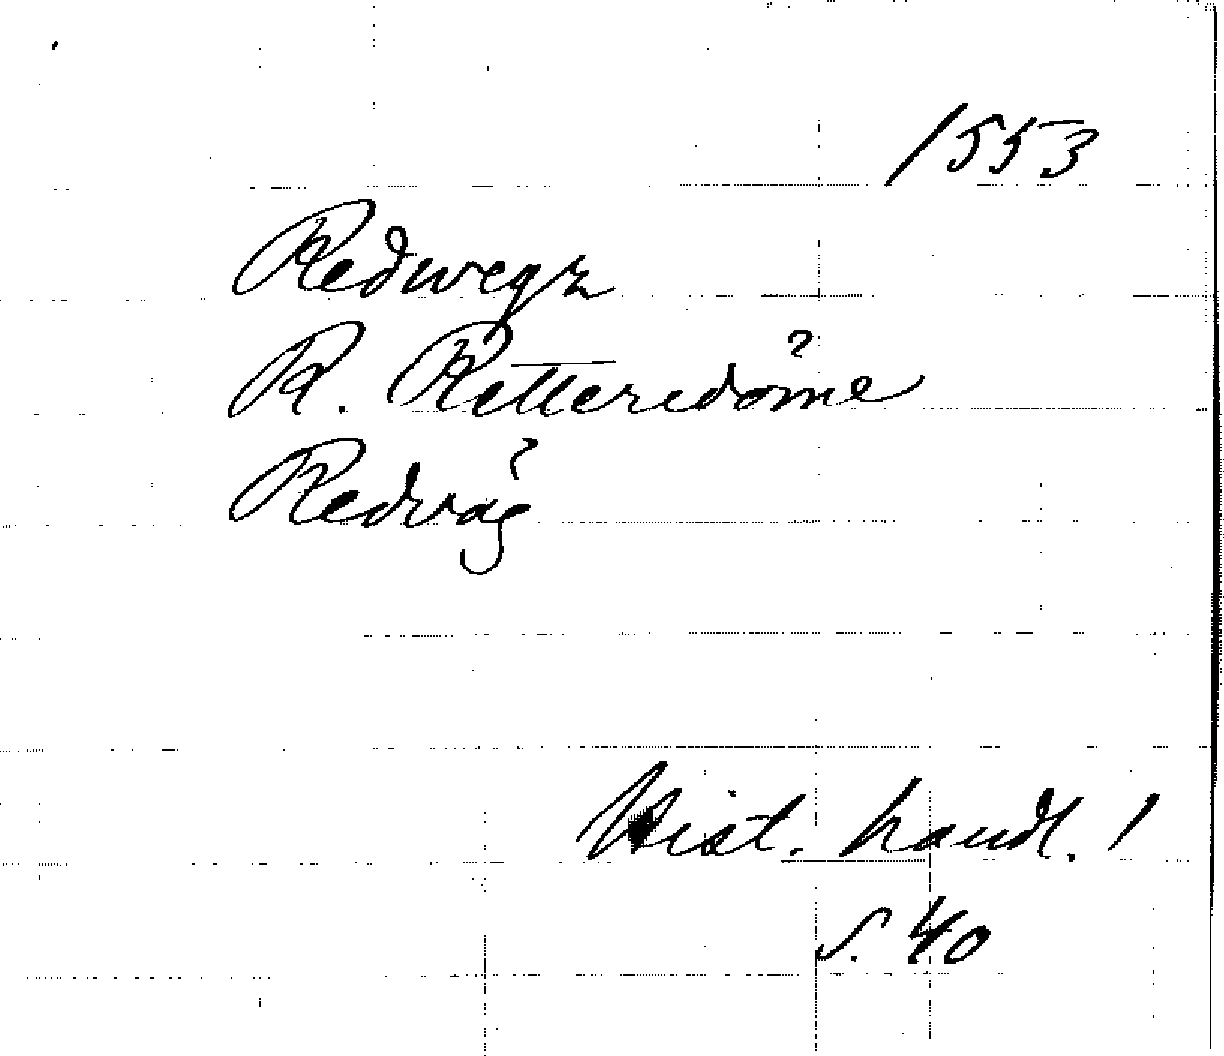 1553
Redwegz
R. Retteredöme
Redväg
Hist. handl. 1
s. 40